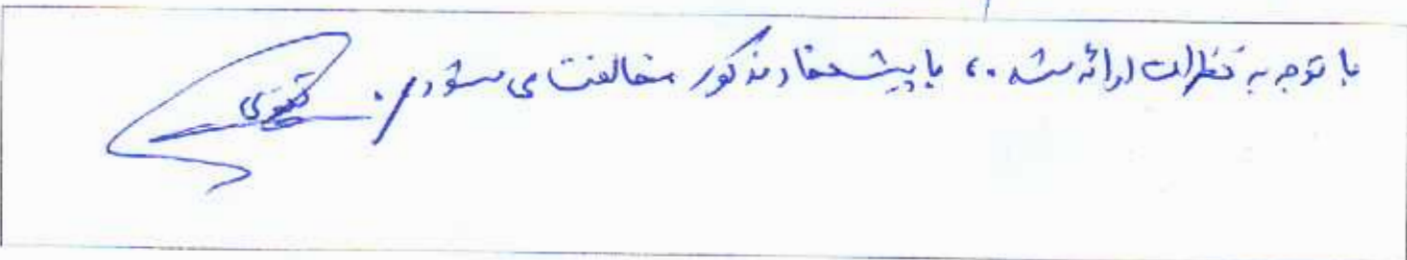 با توجه به نظرات ارائه شده، با پیشنهاد مذکور مخالفت می شود.